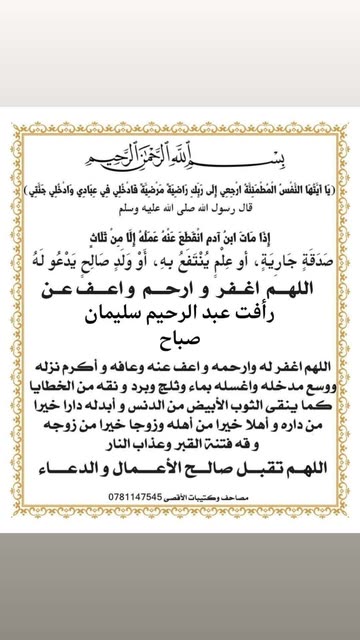 بِسْمِ اللَّهِ الرَّحْمَنِ الرَّحِيمِ
(يَا أَيَّتُهَا النَّفْسُ الْمُطْمَئِنَّةُ ارْجِعِي إِلَى رَبِّكِ رَاضِيَةً مَرْضِيَّةً فَادْخُلِي فِي عِبَادِي وَادْخُلِي جَنَّتِي)
قال رسول الله صلى الله عليه وسلم
إِذَا مَاتَ ابنُ آدم انْقَطَعَ عَنْهُ عَمَلُهُ إِلَّا مِنْ ثَلَاثٍ
صَدَقَةٍ جَارِيَةٍ، أو عِلْمٍ يُنْتَفَعُ بِهِ، أَوْ وَلَدٍ صَالِحٍ يَدْعُو لَهُ
اللهم اغفر و ارحم واعف عن
رأفت عبد الرحيم سليمان
صباح
اللهم اغفر له وارحمه و اعف عنه وعافه و أكرم نزله
ووسع مدخله واغسله بماء وثلج وبرد و نقه من الخطايا
كما ينقى الثوب الأبيض من الدنس و أبدله دارا خيرا
من داره و أهلا خيرا من أهله وزوجا خيرا من زوجه
و قه فتنة القبر وعذاب النار
اللهم تقبل صالح الأعمال و الدعاء
مصاحف وكتيبات الأقصى 0781147545